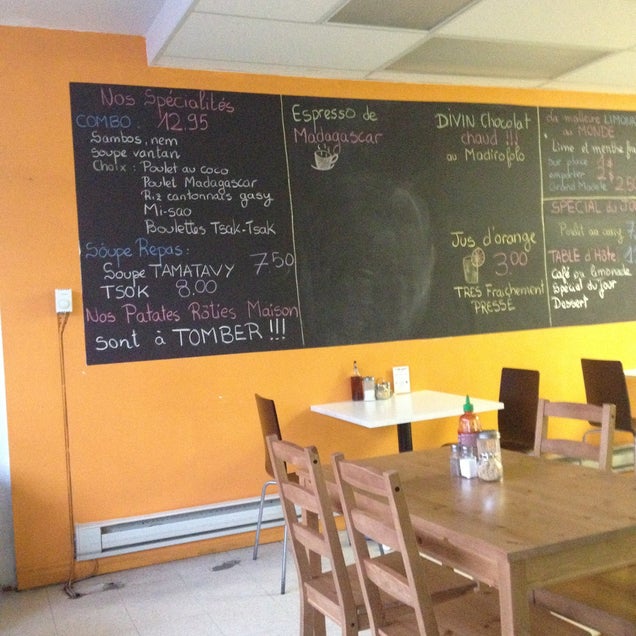 Nos Spécialités
COMBO: 12.95
Sambos, nem
Soupe vantan
Choix : Poulet au coco
Poulet Madagascar
Riz cantonnais gasy
Mi-sao
Boulettes Tsak-Tsak
Soupe Repas:
Soupe TAMATAVY 7.50
TSOK 8.00
Nos Patates Rôties Maison
sont à TOMBER !!!
Espresso de
Madagascar
DIVIN Chocolat
chaud !!!
au Madirofolo
Jus d'orange
3.00
TRES Fraichement
PRESSÉ
La meilleure LIMONA
au MONDE
Lime et menthe
sur place 1$
emporter 2$
Grand Modèle
SPECIAL du JO
Poulet au
TABLE d'Hôte
Café ou limonade
Spécial du jour
Dessert